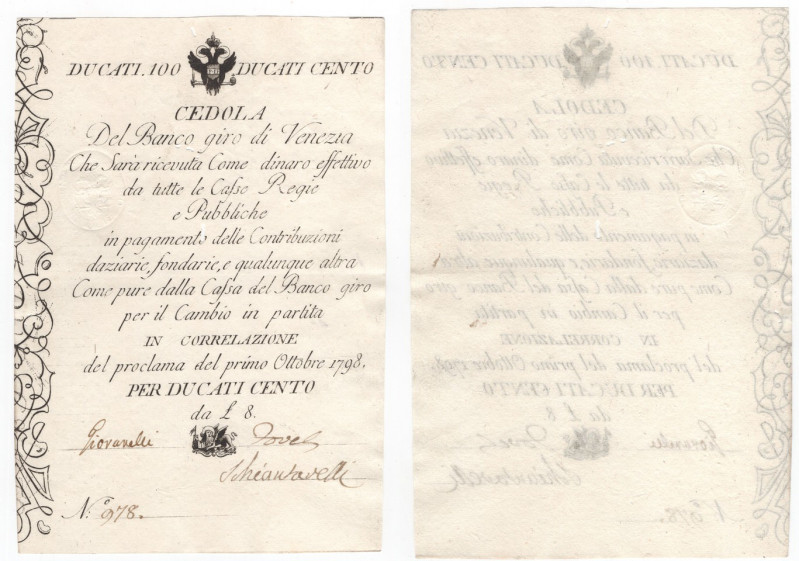 DUCATI.100 DUCATI CENTO
CEDOLA
Del Banco giro di Venezia
Che Sarà ricevuta Come dinaro effettivo
da tutte le Casse Regie
e Pubbliche
in pagamento delle Contribuzioni
daziarie, fondarie, e qualunque altra
Come pure dalla Cassa del Banco giro
per il Cambio in partita
IN CORRELAZIONE
del proclama del primo Ottobre 1798.
PER DUCATI CENTO
da £ 8.
Giovanelli
N.o 978.